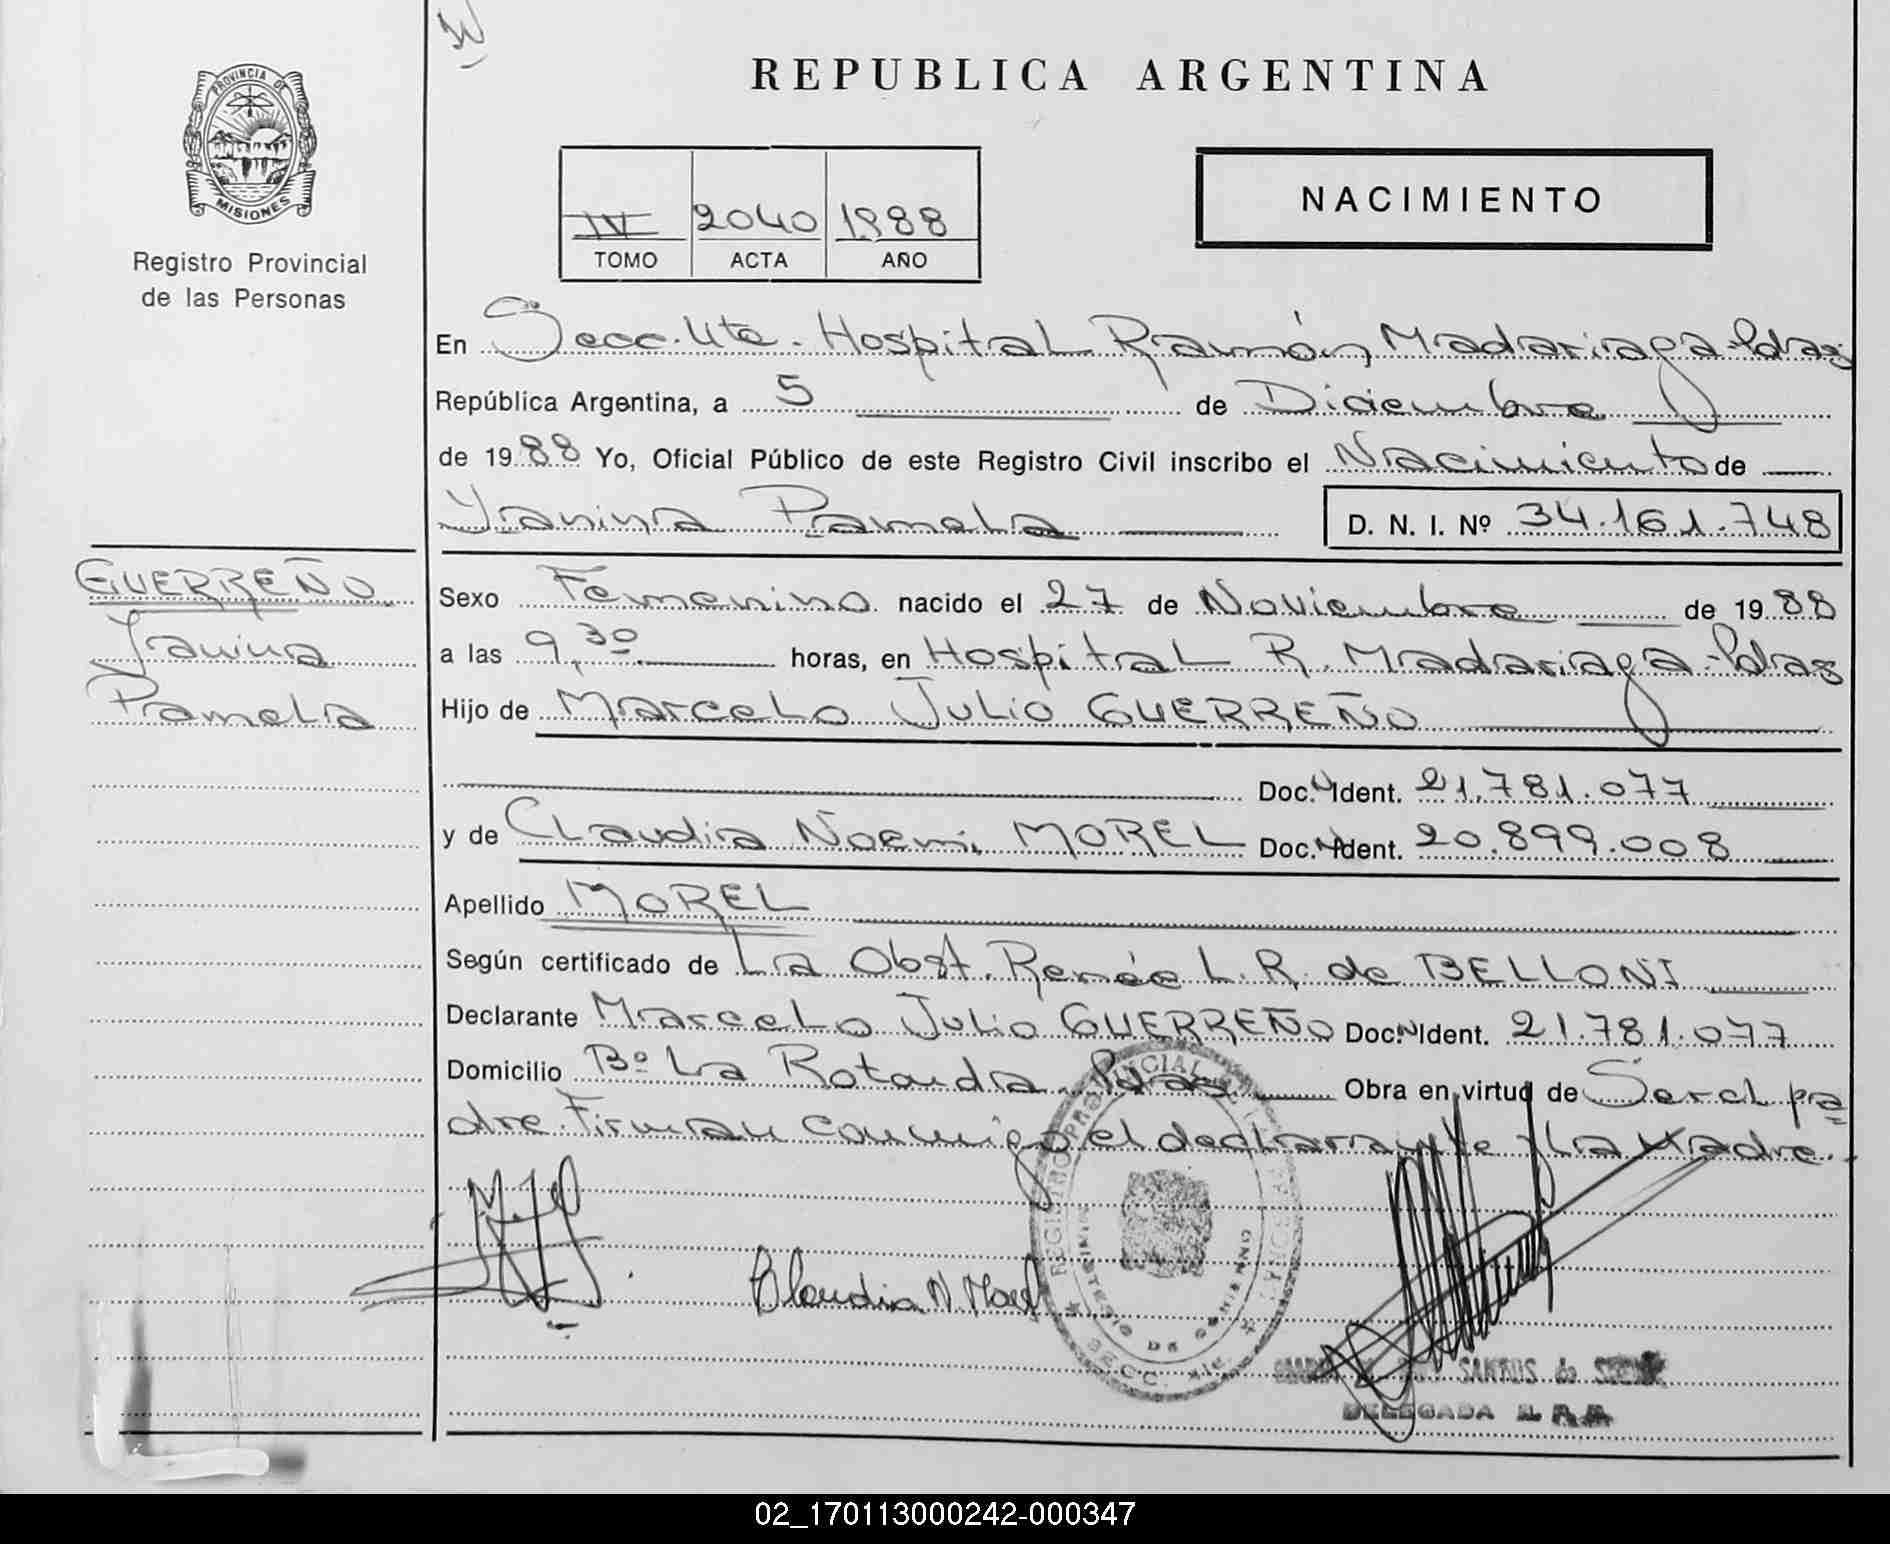 PROVINCIA DE
MISIONES
Registro Provincial
de las Personas
REPUBLICA ARGENTINA
IV 2040 1988
TOMO ACTA AÑO
NACIMIENTO
En Secc. 4ta. Hospital Ramón Madariaga-Pdas
República Argentina, a 5 de Diciembre
de 1988 Yo, Oficial Público de este Registro Civil inscribo el Nacimiento de
Yanina Pamela D. N. I. Nº 34.161.748
GUERREÑO
Yanina
Pamela
Sexo Femenino nacido el 27 de Noviembre de 1988
a las 9,30 horas, en Hospital R. Madariaga-Pdas
Hijo de Marcelo Julio GUERREÑO
Doc. N Ident. 21.781.077
y de Claudia Noemi MOREL Doc. N Ident. 20.899.008
Apellido MOREL
Según certificado de La Obst. Renée L. R. de BELLONI
Declarante Marcelo Julio GUERREÑO Doc. N Ident. 21.781.077
Domicilio Bº La Rotonda Pdas Obra en virtud de Ser el pa-
dre. Firman conmigo el declarante y la Madre.
Claudia N Morel
REGISTRO PROVINCIAL
MINISTERIO DE GOBIERNO
SECC. 4ta
SANTOS de
DELEGADA
02_170113000242-000347